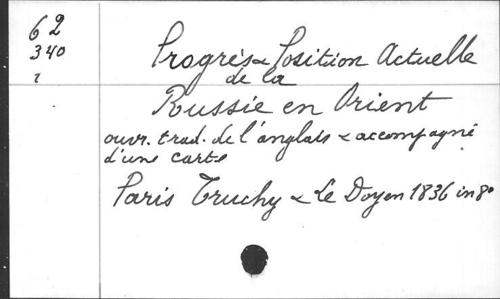 62
340
2
Progrès & Position Actuelle
de la
Russie en Orient
ouvr. trad. de l'anglais & accompagné
d'une carte
Paris Truchy & Le Doyen 1836 in 8°